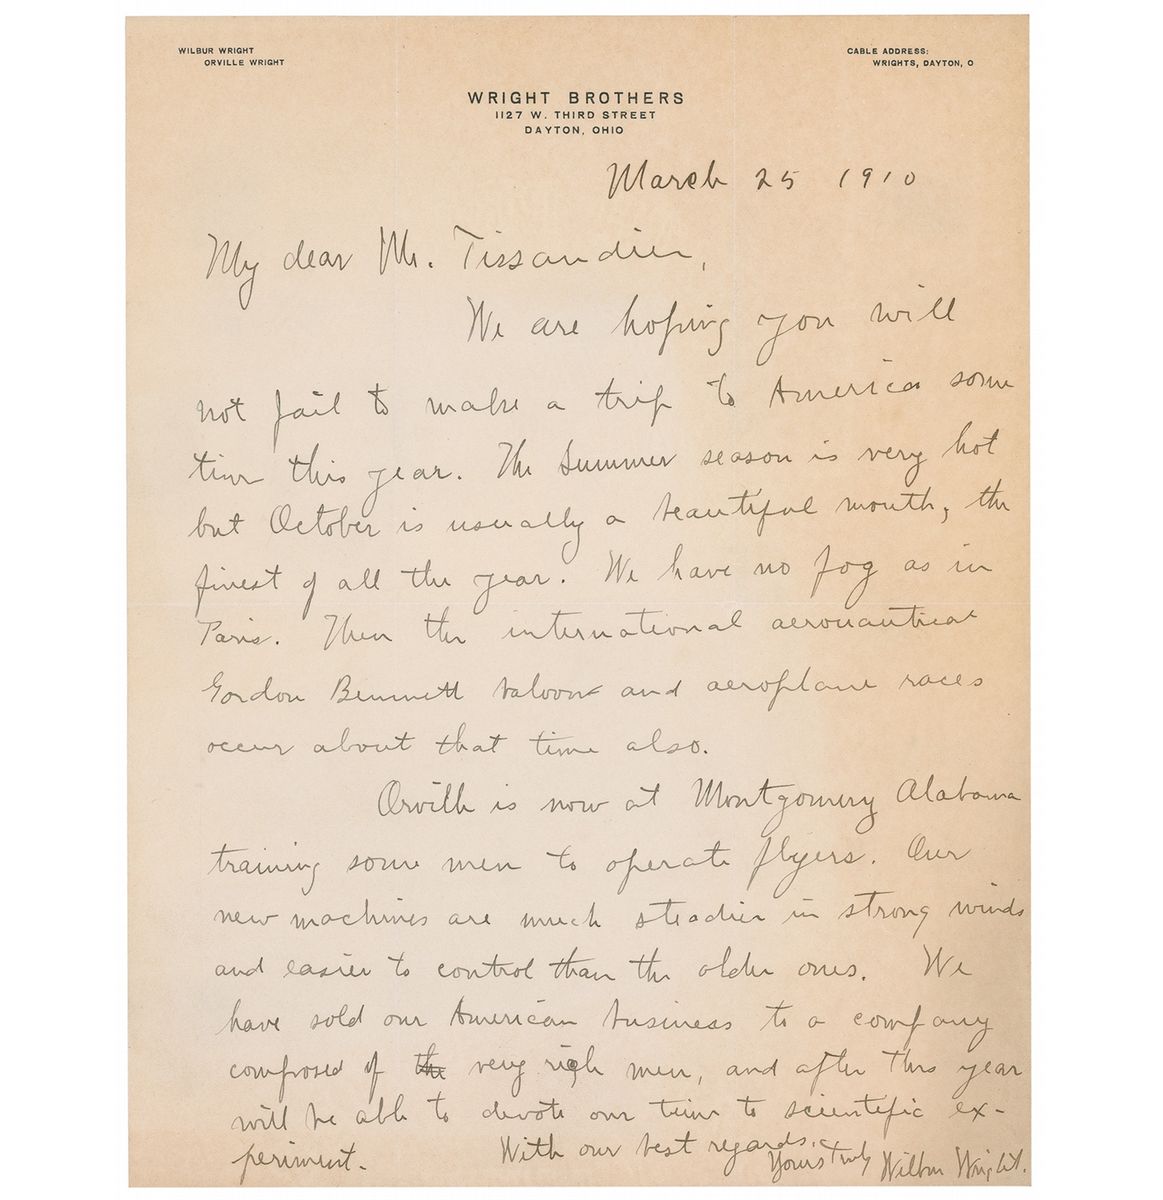 WILBUR WRIGHT
ORVILLE WRIGHT
CABLE ADDRESS:
WRIGHTS, DAYTON, O
WRIGHT BROTHERS
1127 W. THIRD STREET
DAYTON, OHIO
March 25 1910
My dear Mr. Tissandier,
We are hoping you will
not fail to make a trip to America some
time this year. The summer season is very hot
but October is usually a beautiful month, the
finest of all the year. We have no fog as in
Paris. Then the international aeronautical
Gordon Bennett balloon and aeroplane races
occur about that time also.
Orville is now at Montgomery Alabama
training some men to operate flyers. Our
new machines are much steadier in strong winds
and easier to control than the older ones. We
have sold our American business to a company
composed of the very rich men, and after this year
will be able to devote our time to scientific ex-
periment. With our best regards.
Yours truly Wilbur Wright.